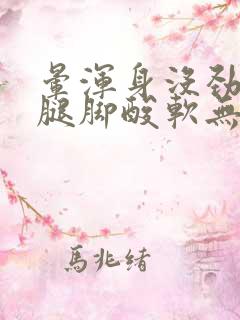 暈渾身沒勁
腿腳酸軟無
馬兆緒